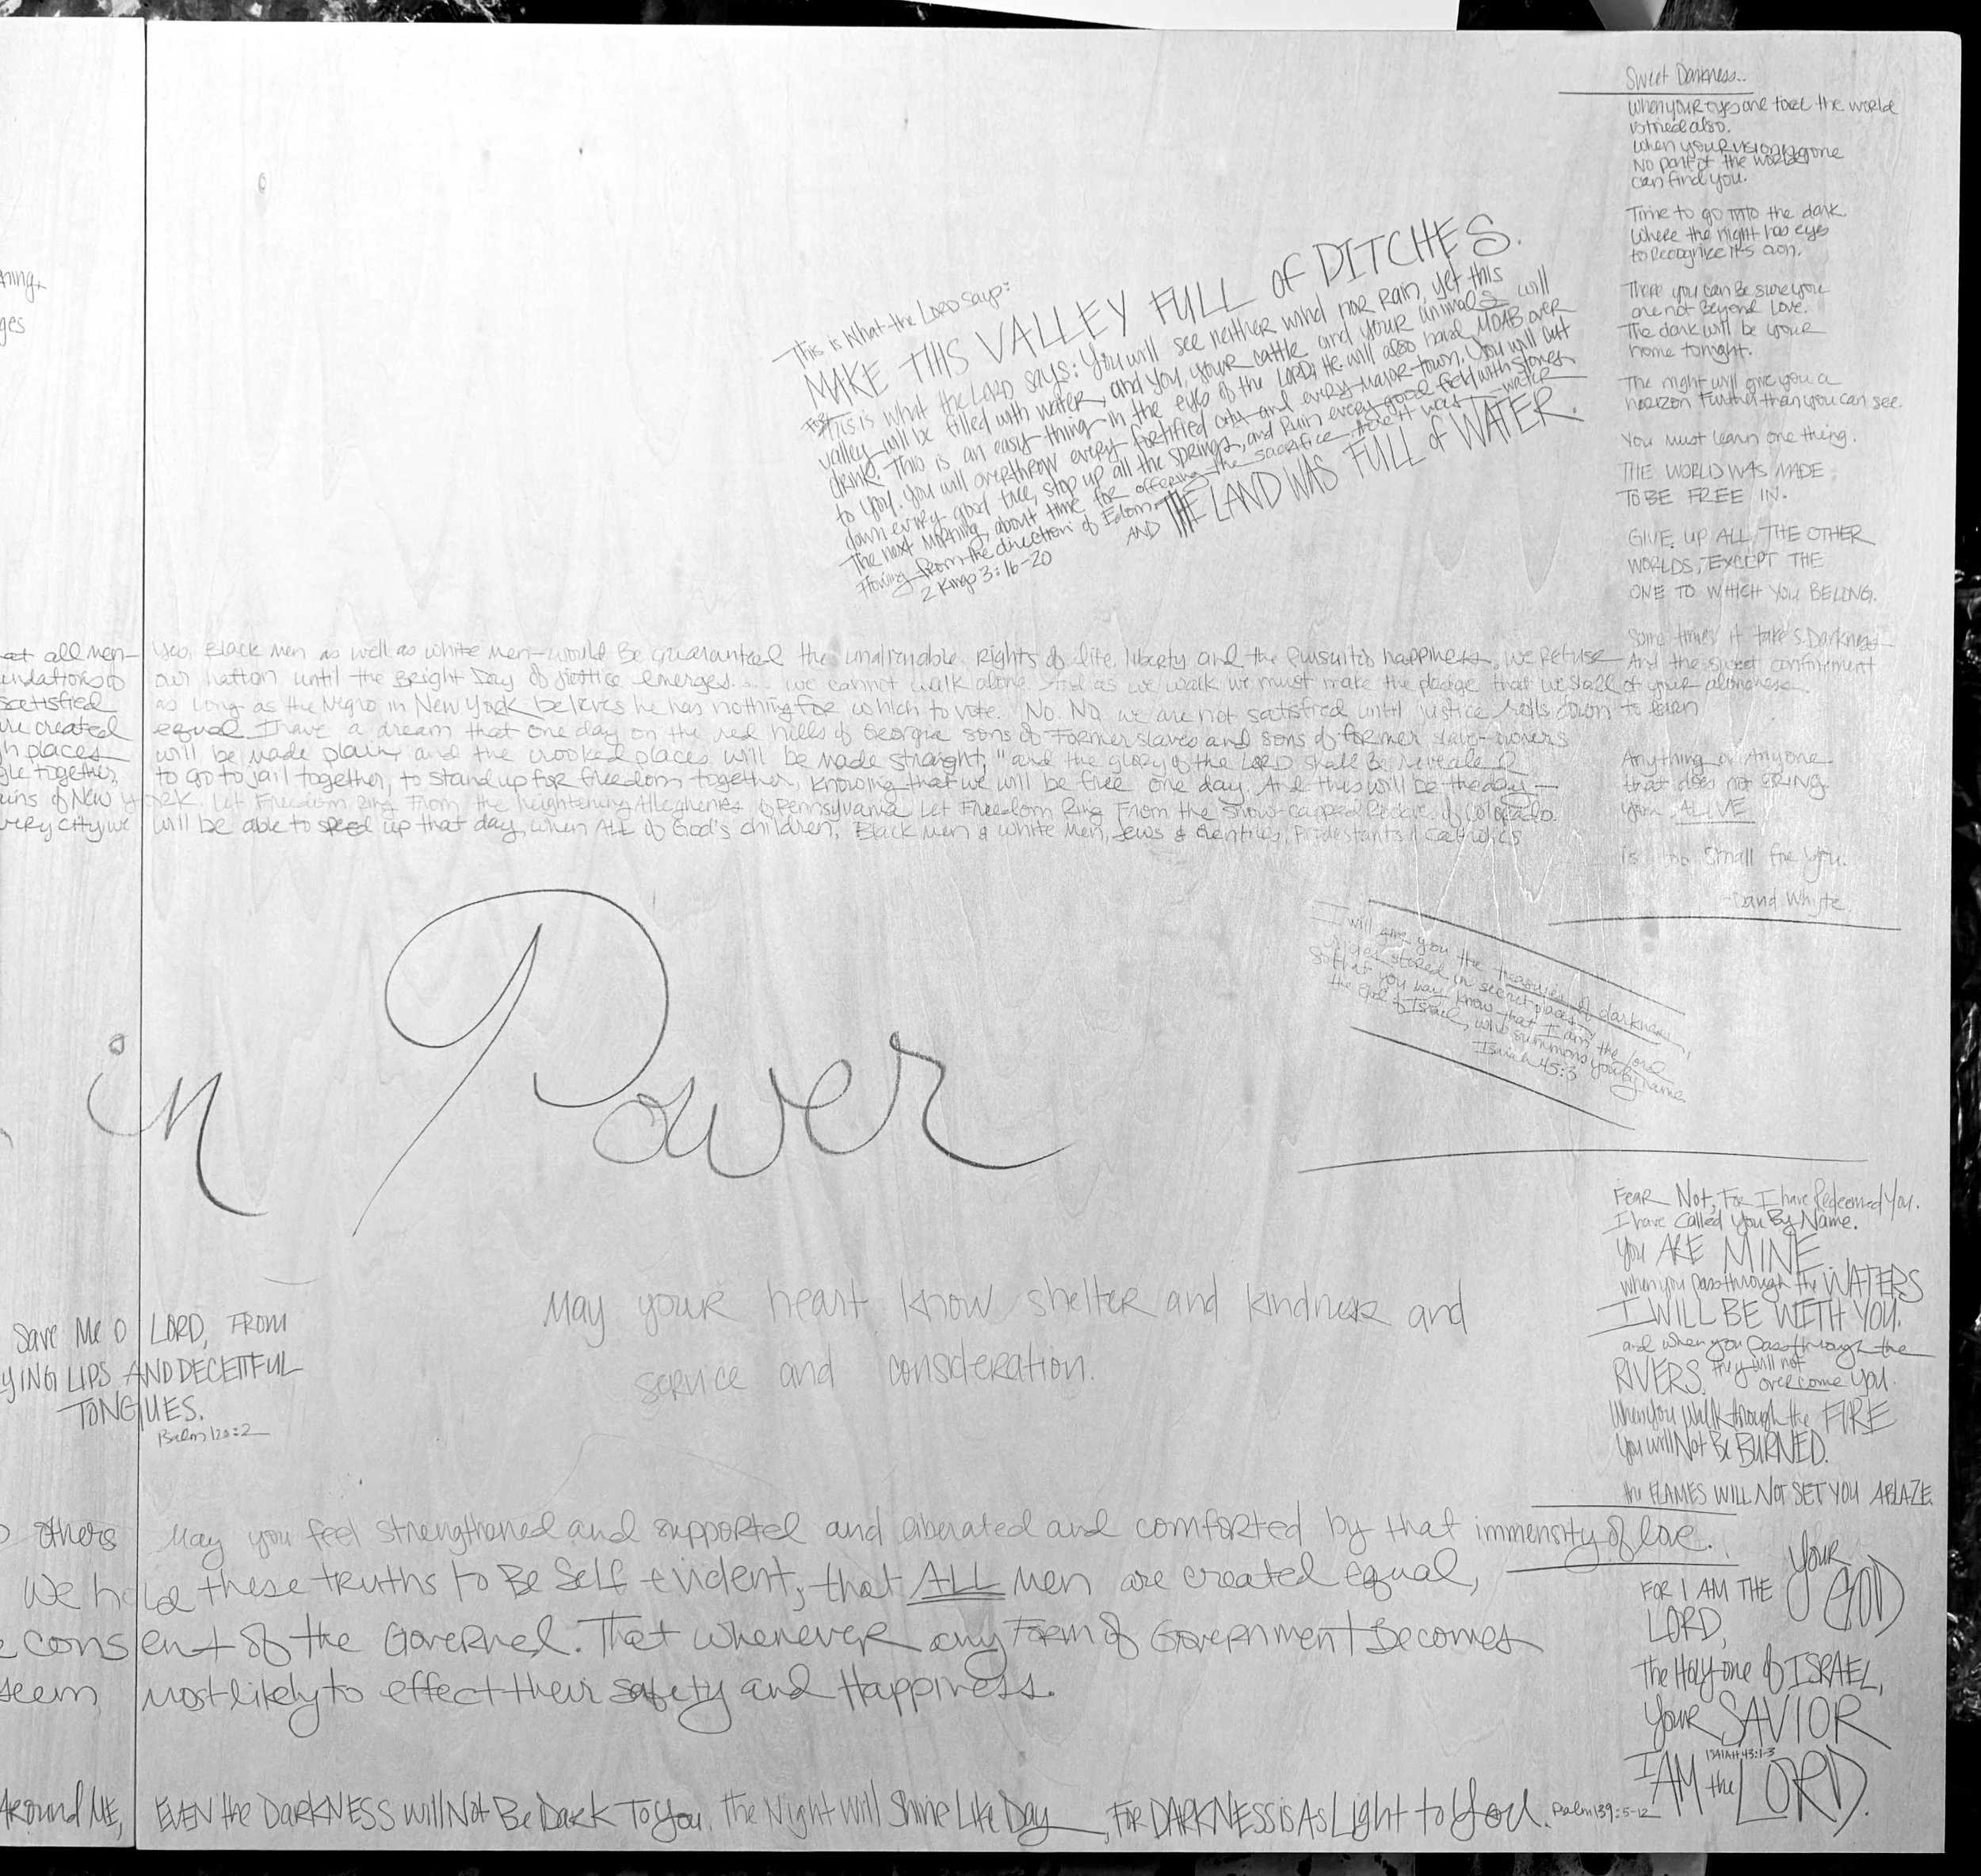 ges
This is What the LORD Says:
MAKE THIS VALLEY FULL of DITCHES.
For this is what the LORD says: You will see neither wind nor Rain, yet this
valley will be filled with water, and you, your cattle and your animals will
drink. This is an easy thing in the eyes of the LORD; He will also hand MOAB over
to you. You will overthrow every fortified city and every major town. You will cut
down every good tree, stop up all the springs, and Ruin every good field with stones
The next morning, about time for offering the sacrifice there it was water
flowing from the direction of Edom AND THE LAND WAS FULL of WATER.
2 Kings 3:16-20
Sweet Darkness..
When your eyes are tired the world
is tired also.
When your vision is gone
No part of the world
can find you.
Time to go into the dark.
Where the night has eyes
to Recognize its own.
There you can Be sure you
are not Beyond Love.
The dark will be your
home tonight.
The night will give you a
horizon Further than you can see.
You must learn one thing.
THE WORLD WAS MADE
TO BE FREE IN.
GIVE UP ALL THE OTHER
WORLDS, EXCEPT THE
ONE TO WHICH YOU BELONG.
Some times it takes Darkness
And the sweet confinement
of your aloneness
to learn
Anything or Anyone
that does not BRING
you ALIVE
is too small for you.
-David Whyte.
all men- yes, Black men as well as white men-would Be guaranteed the unalienable Rights of life, liberty and the Pursuit of happiness, we Refuse
our nation until the Bright Day of justice emerges.... we cannot walk alone. And as we walk we must make the pledge that we shall
satisfied as long as the Negro in New York believes he has nothing for which to vote. No. No. we are not satisfied until justice rolls down
are created equal I have a dream that one day on the red hills of Georgia sons of Former slaves and sons of former slave-owners
places will be made plain, and the crooked places will be made straight, "and the glory of the LORD shall Be revealed
together, to go to jail together, to stand up for freedom together, knowing that we will be free one day. And this will be the day-
ins of New York. Let Freedom Ring From the heightening Alleghenies of Pennsylvania Let Freedom Ring From the snow-capped Rockies of Colorado.
very city we will be able to speed up that day, when ALL of God's children, Black men & white men, Jews & Gentiles, Protestants & Catholics
I will give you the treasures of darkness,
stored in secret places,
So that you may know that I am the Lord
the God of Israel, who summons you By name.
Isaiah 45:3
in Power
Fear Not, For I have Redeemed You.
I have Called You By Name.
You ARE MINE
when you pass through the WATERS
I WILL BE WITH YOU.
and when you pass through the
RIVERS, they will not
overcome you.
When you walk through the FIRE
You will Not Be BURNED.
the FLAMES WILL NOT SET YOU ABLAZE.
FOR I AM THE Your GOD
LORD,
The Holy one of ISRAEL,
Your SAVIOR
ISAIAH 43:1-3
I AM the LORD.
May your heart know shelter and kindness and
service and consideration.
Save Me O LORD, FROM
YING LIPS AND DECEITFUL
TONGUES.
Psalm 120:2
others May you feel strengthened and supported and liberated and comforted by that immensity of love.
We hold these truths to Be Self evident, that ALL Men are created equal,
consent of the Governed. That whenever any Form of Government Becomes
seem most likely to effect their safety and Happiness.
Around ME, EVEN the DARKNESS will Not Be Dark To You, The Night Will Shine Like Day, FOR DARKNESS is As Light to You. Psalm 139:5-12